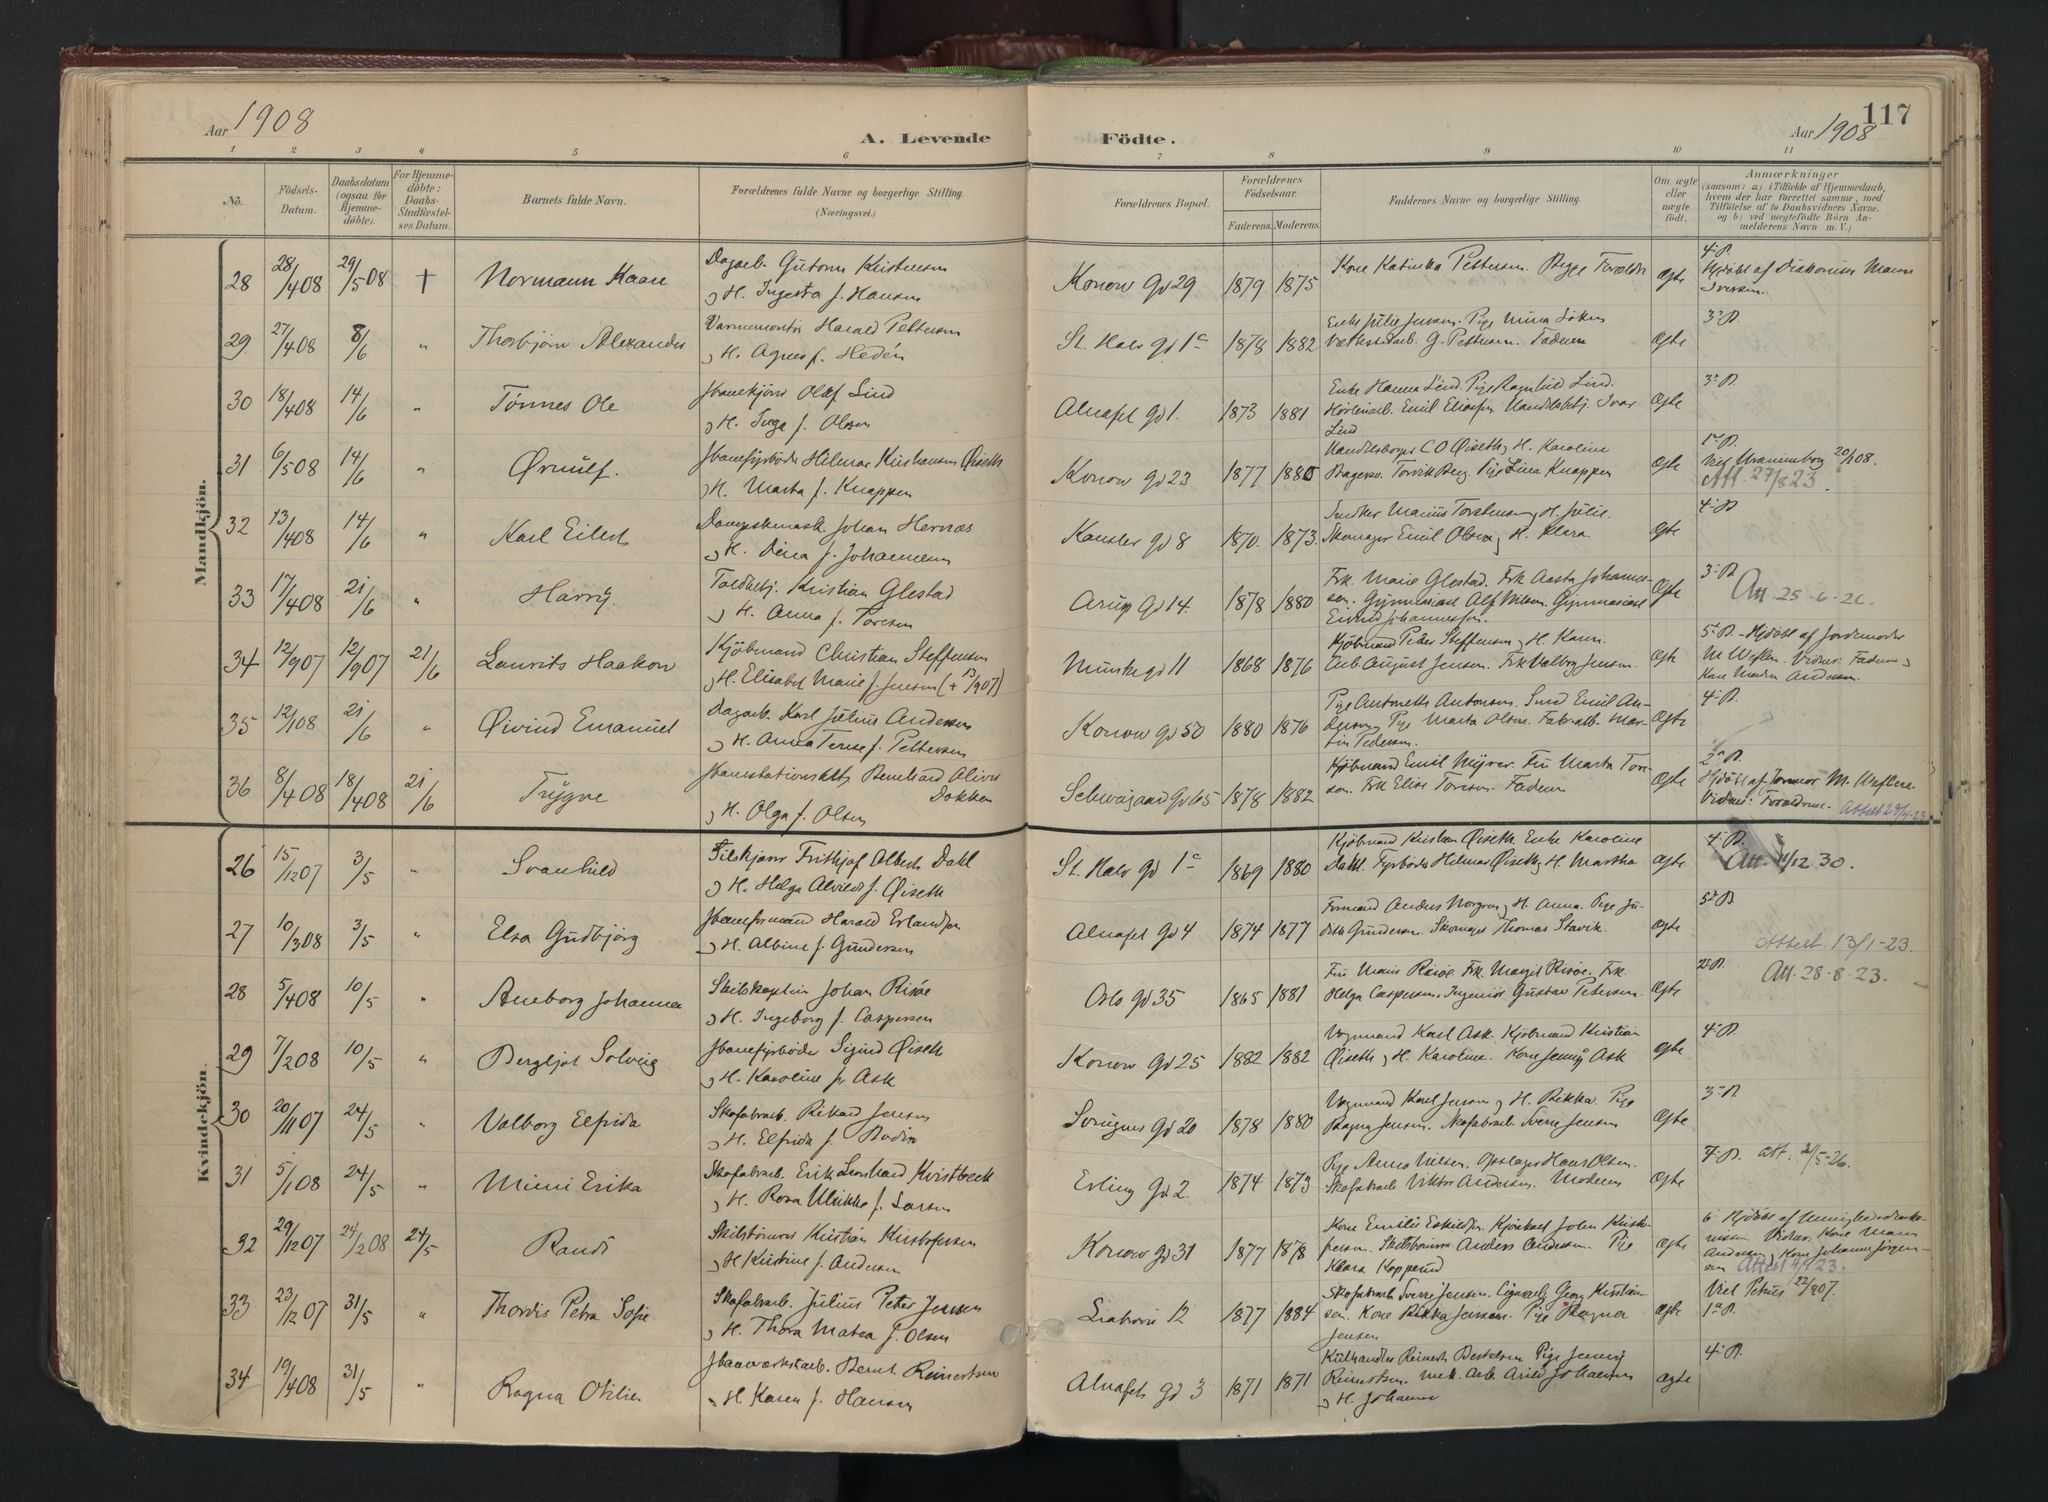 Aar 1908
A. Levende
Födte.
117
Aar 1908
1 2 3 4 5 6 7 8 9 10 11
No.
Födsels-Datum.
Daabsdatum (ogsaa for Hjemmedöbte).
For Hjemmedöbte: Daabs-Stadfæstelses Datum.
Barnets fulde Navn.
Forældrenes fulde Navne og borgerlige Stilling. (Næringsvei.)
Forældrenes Bopæl.
Forældrenes Födselsaar.
Faderens. Moderens.
Faddernes Navne og borgerlige Stilling.
Om ægte eller uægte födt.
Anmærkninger
(saasom: a) i Tilfælde af Hjemmedaab, hvem der har forrettet samme, med Tilföielse af to Daabsvidners Navne, og b) ved uægtefödte Börn Anmelderens Navn m. V.)
Mandkjön.
28 28/4 08 29/5 08 † Normann Kaare Dagarb. Gutorm Kristensen
og H. Ingesta f. Hansen Konow gd 29 1879 1875 Kone Katinka Pettersen. Begge Forældre Ægte 4-P. Hjdöbt af Diakonisse Marie Iversen.
29. 27/4 08 8/6 " Thorbjörn Alexander Varmemontör Harald Pettersen
og H. Agnes f. Hedén St. Halv gd 1c 1878 1882 Enke Julie Jensen. Pige Mina
Værkstedarb. G. Pettersen. Faderen Ægte 3-P.
30 18/4 08 14/6 " Tönnes Ole Jbanekjörer Olaf Lind
og H. Inga f. Olsen Alnafet gd 1. 1873 1881 Enke Hanna Lind. Pige Ragnhild Lind.
Emil Eliassen Handelsbetj. Ivar
Lind Ægte 3-P.
31 6/5 08 14/6 " Ørnulf. Jbanefyrböder Hilmar Kristiansen Øiseth
og H. Marta f. Knappen Konow gd 23 1877 1880 Handelsborger C O Øiseth og H. Karoline
Berg. Pige Lina Knappen Ægte 1-P. Viet Uranienborg 20/1 08. Att. 27/8 23
32 13/4 08 14/6 " Karl Eilert Johan Hernæs
og H. Dina f. Johannesen Kansler gd 8 1870. 1873. Marius Torstensen og H. Julie.
Skomager Emil Olsen og H. Klara Ægte 4-P
33 17/4 08 21/6 " Harry. Toldbetj. Kristian Glestad
og H. Anna f. Toresen Arups Gd 14. 1878 1880 Frk. Marie Glestad. Frk Aasta Johannes-
sen. Gymnasiast Alf Nilsen. Gymnasiast
Eivind Johannessen. Ægte 3-P. Att. 25-6-26
34 12/9 07 12/9 07 21/6 Laurits Haakon Kjöbmand Christian Steffensen
og H. Elisabet Marie f. Jensen (+ 13/9 07) Munkegd 11 1868 1876 Kjöbmand Peter Steffensen og H. Karen.
Arb. August Jensen. Frk Valborg Jensen. Ægte 5-P. - Hjdöbt af Jordemoder
M Weflen. Vidner: Faderen og
Kone Andersen.
35 12/1 08 21/6 " Øivind Emanuel Dagarb. Karl Julius Andersen
og H. Anna Terese f. Pettersen Konow gd 50 1880 1876 Pige Antonette Antonsen. Smed Emil An-
dersen. Pige Marta Olsen. Fabrarb. Mar-
tin Pedersen. Ægte 4-P.
36 8/4 08 18/4 08 21/6 Trygve Jbanestationsbetj Bernhard Oliver
Dokken
og H. Olga f. Olsen Schweigaard Gd 65 1878 1882 Kjöbmand Emil Myrer. Fru Marta Tore-
sen. Frk Elise Toresen. Faderen Ægte 2-P. Hjdöbt af Jormor M. Weflen.
Vidner: Forældrene. Attest 28/4-23
Kvindekjön.
26 15/12 07 3/5 " Svanhild Filskjærer Frithjof Albert Dahl
og H. Helga Alvilde f. Øiseth St. Halv gd 1c 1869 1880 Kjöbmand Kristian Øiseth. Enke Karoline
Dahl. Fyrböder Hilmar Øiseth og H. Martha Ægte 4-P. Att. 11/12 30.
27 10/3 08 3/5 " Elsa Gudbjörg Jbaneformand Harald Erlandsen
og H. Albine f. Gundersen Alnafet Gd 4 1874 1877 Formand Anders Norgren og H. Anna. Pige Ju-
dith Gundersen. Skomager Thomas Stavik. Ægte 5-P. Attest 13/1-23.
28 5/4 08 10/5 " Aneborg Johanna Skibskaptein Johan Risöe
og H. Ingeborg f. Caspersen Oslo gd 35 1865 1881 Fru Marie Risöe. Frk. Margit Risöe. Frk.
Helga Caspersen. Ingeniör Gustav Petersen. Ægte 2-P. Att. 28-8-23.
29 7/2 08 10/5 " Bergljot Solveig Jbanefyrböder Sigurd Øiseth
og H. Karoline f. Ask Konow Gd 25 1882 1882 Vognmand Karl Ask. Kjöbmand Kristian
Øiseth og H. Karoline. Kone Jenny Ask Ægte 4-P.
30 20/11 07 24/5 " Valborg Elfrida Skofabrarb. Rikard Jensen
og H. Elfrida f. Bodin Sörigne Gd 20 1878 1880 Vognmand Karl Jensen og H. Rikka. Pige
Ragna Jensen. Skofabrarb. Sverre Jensen Ægte 3-P.
31 5/1 08 24/5 " Mimi Erika Skofabrarb. Erik Leonhard Kvistbæck
og H. Rosa Ulrikke f. Larsen Erling Gd 2. 1874 1873 Pige Anna Nilsen. Opslager Hans Olsen.
Skofabrarb Viktor Andersen. Moderen Ægte 4-P. Att. 21/5-26.
32 29/12 07 24/2 08 24/5 Randi Skibstömrer Kristian Kristofersen
og H Kristine f. Andersen Konow Gd 31 1877 1878 Kone Emilie Eskildsen. John Kristo-
fersen. Skibstömrer Anders Andersen. Pige
Klara Kopperud Ægte 6- Hjdöbt af Menighedsdiako-
nissen. Vidner: Kone Maren
Andersen og Kone Johanne Jörgen-
sen Attest 23.
33 23/12 07 31/5 " Thordis Petra Sofie Skofabrarb. Julius Peter Jensen
og H. Thora Matea f. Olsen Liabroveien 12 1877 1884 Skofabrarb Sverre Jensen. Cigararb. Georg Kristian-
sen. Kone Rikka Jensen. Pige Ragna
Jensen Ægte Viet Petrus 22/9 07.
1-P.
34 19/4 08 31/5 " Ragna Otilie Jbaneværkstarb. Bernt Reinertsen
og H. Karen f. Hansen Alnafet gd 3 1871 1871 Kulhandler Reinert Berntsen Pige Jenny
Reinertsen. Mek. Arb. Arild Johansen
og H. Johanne Ægte 4-P.